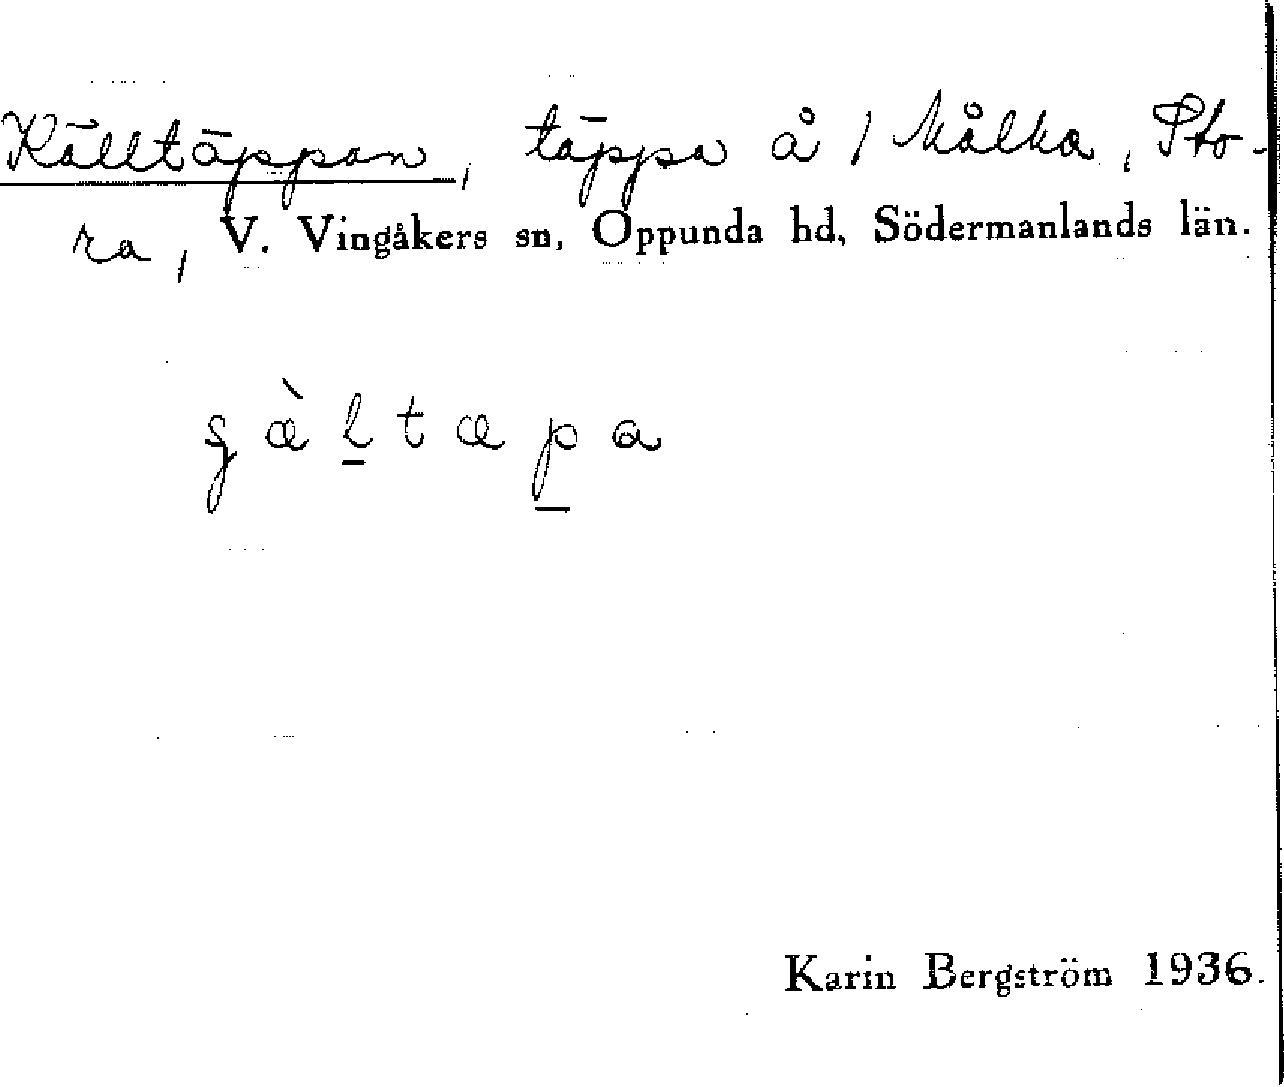 Källtäppan, täppa å / Målka, Sto-
ra, V. Vingåkers sn, Oppunda hd, Södermanlands län.
Karin Bergström 1936.